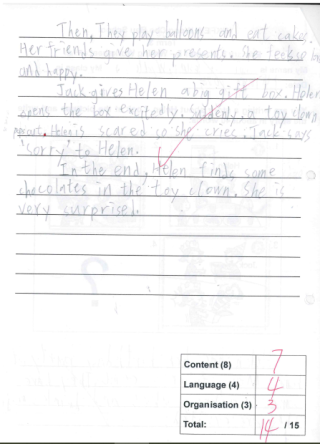 Then, They play balloons and eat cake.
Her friends give her presents. She feels
and happy.
Jack gives Helen a big gift box. Helen
opens the box excitedly. Suddenly, a toy clown
Helen is scared so she cries. Jack says
'sorry' to Helen.
In the end, Helen finds some
chocolates in the toy clown. She is
very surprised.
Content (8) 7
Language (4) 4
Organisation (3) 3
Total: 14 / 15